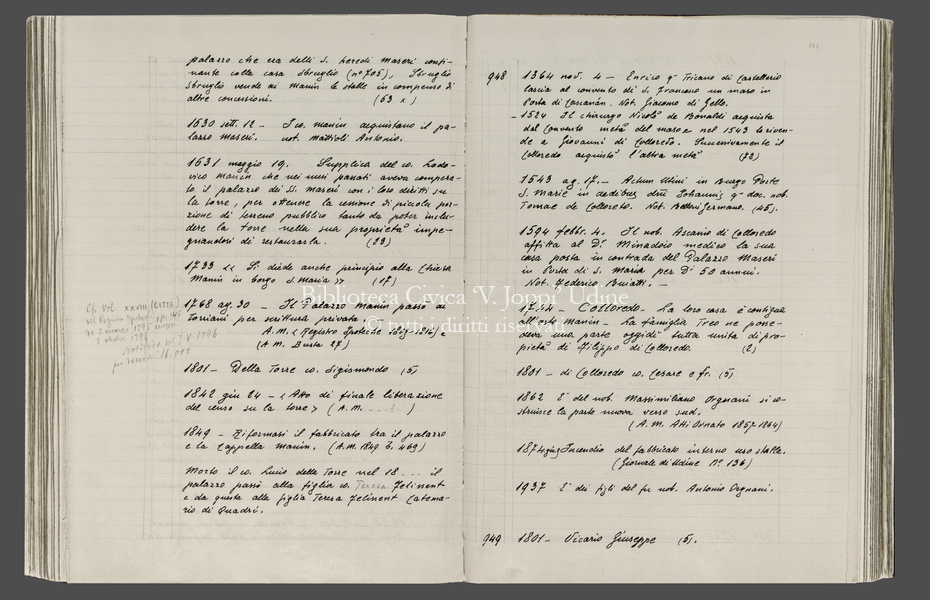 palazzo che era delli S. heredi Maseri conti-
nante colla casa Sbruglio (n° 705), Sbruglio
Sbruglio vende ai Manin le stalle in compenso di
altre concessioni. (63 x)
1630 sett. 12 - I co. Manin acquistano il pa-
lazzo Maseri. not. Mattioli Antonio.
1631 maggio 19. Supplica del co. Lodo-
vico Manin che nei mesi passati aveva compera-
to il palazzo dei SS. Maseri con i loro diritti su
la torre, per ottenere la cessione di piccola por-
zione di terreno pubblico tanto da poter inclu-
dere la torre nella sua proprietà impe-
gnandosi di restaurarla. (23)
1733 << Si diede anche principio alla Chiesa
Manin in borgo S. Maria >> (17)
Cf. Vol. XXVIII (CITTÀ)
1768 ag. 30 - Il Palazzo Manin passò ai
Torriani per scrittura privata.
A.M. (Registro Ipoteche
(A M. Busta 27)
1801 - Della Torre co. Sigismondo (5)
1842 giu 24 - < Atto di finale liberazione
del censo su la torre > (A.M. ... )
1849 - Riformasi il fabbricato tra il palazzo
e la Cappella Manin. (A.M. 1849 B. 469)
Morto il co. Lucio della Torre nel 18 .... il
palazzo passò alla figlia co. Teresa Felissent
e da questa alla figlia Teresa Felissent Catema-
rio di Quadri.
948 1364 nov. 4 - Enrico q. Tricano di Castellerio
lascia al convento di S. Francesco un maso in
Porta di Cascanàn. Not. Giacomo di Gello.
- 1524 Il chirurgo Nicolò de Bonaldi acquista
dal Convento metà del maso e nel 1543 lo riven-
de a Giovanni di Colloredo. Successivamente il
Colloredo acquistò l'altra metà (72)
1543 ag. 17. - Actum Utini in Burgo Porte
S. Marie in aedibus dni Iohannis q. doc. nob.
Tomae de Colloreto. Not. Belloni Germano. (45).
1594 febbr. 4. Il nob. Ascanio di Colloredo
affitta al Dr Minadoio medico la sua
casa posta in contrada del Palazzo Maseri
in Porta di S. Maria per Di 50 annui.
Not. Federico Buiatti. -
17.94 - Colloredo. La loro casa è contigua
all'orto Manin - La famiglia Treo ne posse-
deva una parte oggidì tutta unita di pro-
prietà di Filippo di Colloredo. (2)
1801 - di Colloredo co. Cesare e fr. (5)
1862 È del nob. Massimiliano Orgnani si co-
struisce la parte nuova verso sud.
(A. M. Atti Ornato 1857-1864)
1874 giug Incendio del fabbricato interno uso stalla.
(Giornale di Udine N° 136)
1937 È dei figli del fu nob. Antonio Orgnani.
949 1801 - Vicario Giuseppe (5).
Biblioteca Civica 'V. Joppi' Udine
© tutti i diritti riservati